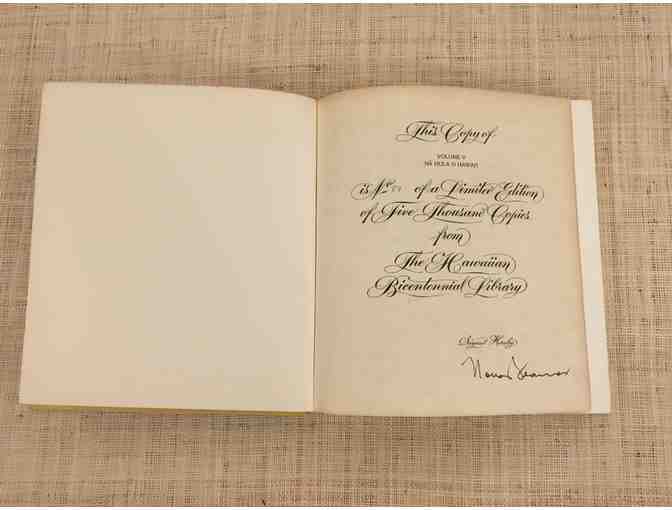 This Copy of
VOLUME V
NĀ HULA O HAWAI'I
is No. of a Limited Edition
of Five Thousand Copies
from
The Hawaiian
Bicentennial Library
Signed Hereby